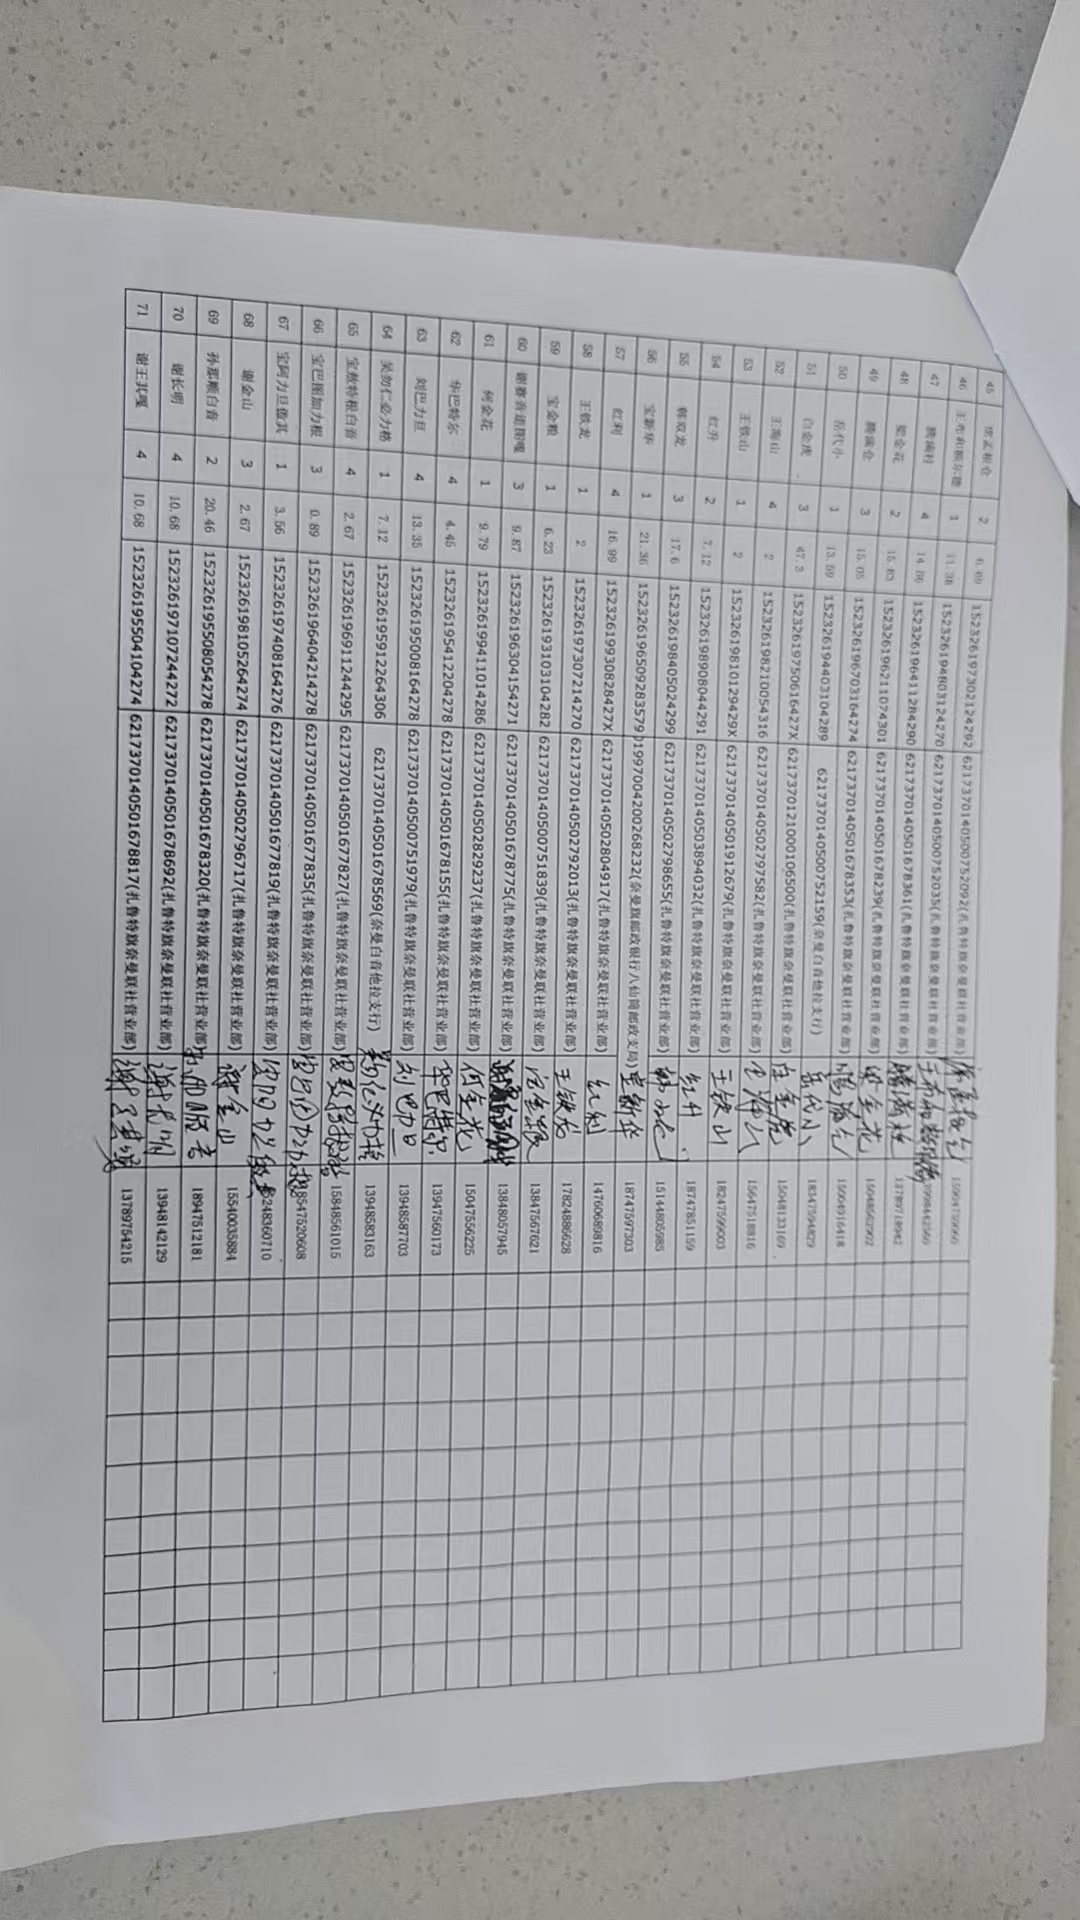 45 2 6.69 152326197302124292 6217370140500752092(扎鲁特旗奈曼联社营业部)
46 王布和额尔德 1 11.38 152326194803124270 6217370140500752035(扎鲁特旗奈曼联社营业部)
47 腾满柱 4 152326196411284290 6217370140501678361(扎鲁特旗奈曼联社营业部)
48 梁金花 2 15.83 152326196211074301 6217370140501678239(扎鲁特旗奈曼联社营业部) 梁金花
49 腾满仓 3 15.05 152326196703164274 6217370140501678353(扎鲁特旗奈曼联社营业部)
50 吊代小 1 13.59 152326194403104289 6217370140500752159(奈曼白音他拉支行) 15004916418
51 白金虎 3 47.3 15232619750616427X 6217370121000106500(扎鲁特旗奈曼联社营业部) 18347594829
52 王海山 4 2 152326198210054316 6217370140502797582(扎鲁特旗奈曼联社营业部) 王海山 15048133169
53 王铁山 1 2 15232619810129429X 6217370140501912679(扎鲁特旗奈曼联社营业部) 王铁山 15647518816
54 红升 2 7.12 152326198908044291 6217370140503894032(扎鲁特旗奈曼联社营业部) 红升 18247599003
55 韩双龙 3 17.6 152326198405024299 6217370140502798655(扎鲁特旗奈曼联社营业部) 18747851159
56 宝新华 1 21.36 152326196509283579 (奈曼旗邮政银行八仙筒邮政支局) 宝新华 15144805985
57 红利 4 16.99 15232619930828427X 6217370140502804917(扎鲁特旗奈曼联社营业部) 红利 18747597303
58 王铁龙 1 2 152326197307214270 6217370140502792013(扎鲁特旗奈曼联社营业部) 王铁龙 14760689816
59 宝金粮 1 6.23 152326193103104282 6217370140500751839(扎鲁特旗奈曼联社营业部) 17824886628
60 谢赛音道图嘎 3 9.87 152326196304154271 6217370140501678775(扎鲁特旗奈曼联社营业部) 13847567621
61 何金花 1 9.79 152326199411014286 6217370140502829237(扎鲁特旗奈曼联社营业部) 何金花 13848057945
62 华巴特尔 4 4.45 152326195412204278 6217370140501678155(扎鲁特旗奈曼联社营业部) 华巴特尔 15047556225
63 刘巴力旦 4 13.35 152326195008164278 6217370140500751979(扎鲁特旗奈曼联社营业部) 刘巴力旦 13947560173
64 吴勿仁必力格 1 7.12 152326195912264306 6217370140501678569(奈曼白音他拉支行) 13948587703
65 宝敖特根白音 4 2.67 152326196911244295 6217370140501677827(扎鲁特旗奈曼联社营业部) 13948583163
66 宝巴图加力根 3 0.89 152326196404214278 6217370140501677835(扎鲁特旗奈曼联社营业部) 15848561015
67 宝阿力旦傲其 1 3.56 152326197408164276 6217370140501677819(扎鲁特旗奈曼联社营业部) 8547520608
68 谢金山 3 2.67 152326198105264274 6217370140502796717(扎鲁特旗奈曼联社营业部) 谢金山 248360710
69 孙那顺白音 2 20.46 152326195508054278 6217370140501678320(扎鲁特旗奈曼联社营业部) 15540035884
70 谢长明 4 10.68 152326197107244272 6217370140501678692(扎鲁特旗奈曼联社营业部) 谢长明 18947512181
71 谢王其嘎 4 10.68 152326195504104274 6217370140501678817(扎鲁特旗奈曼联社营业部) 谢王其嘎 13948142129
13789754215